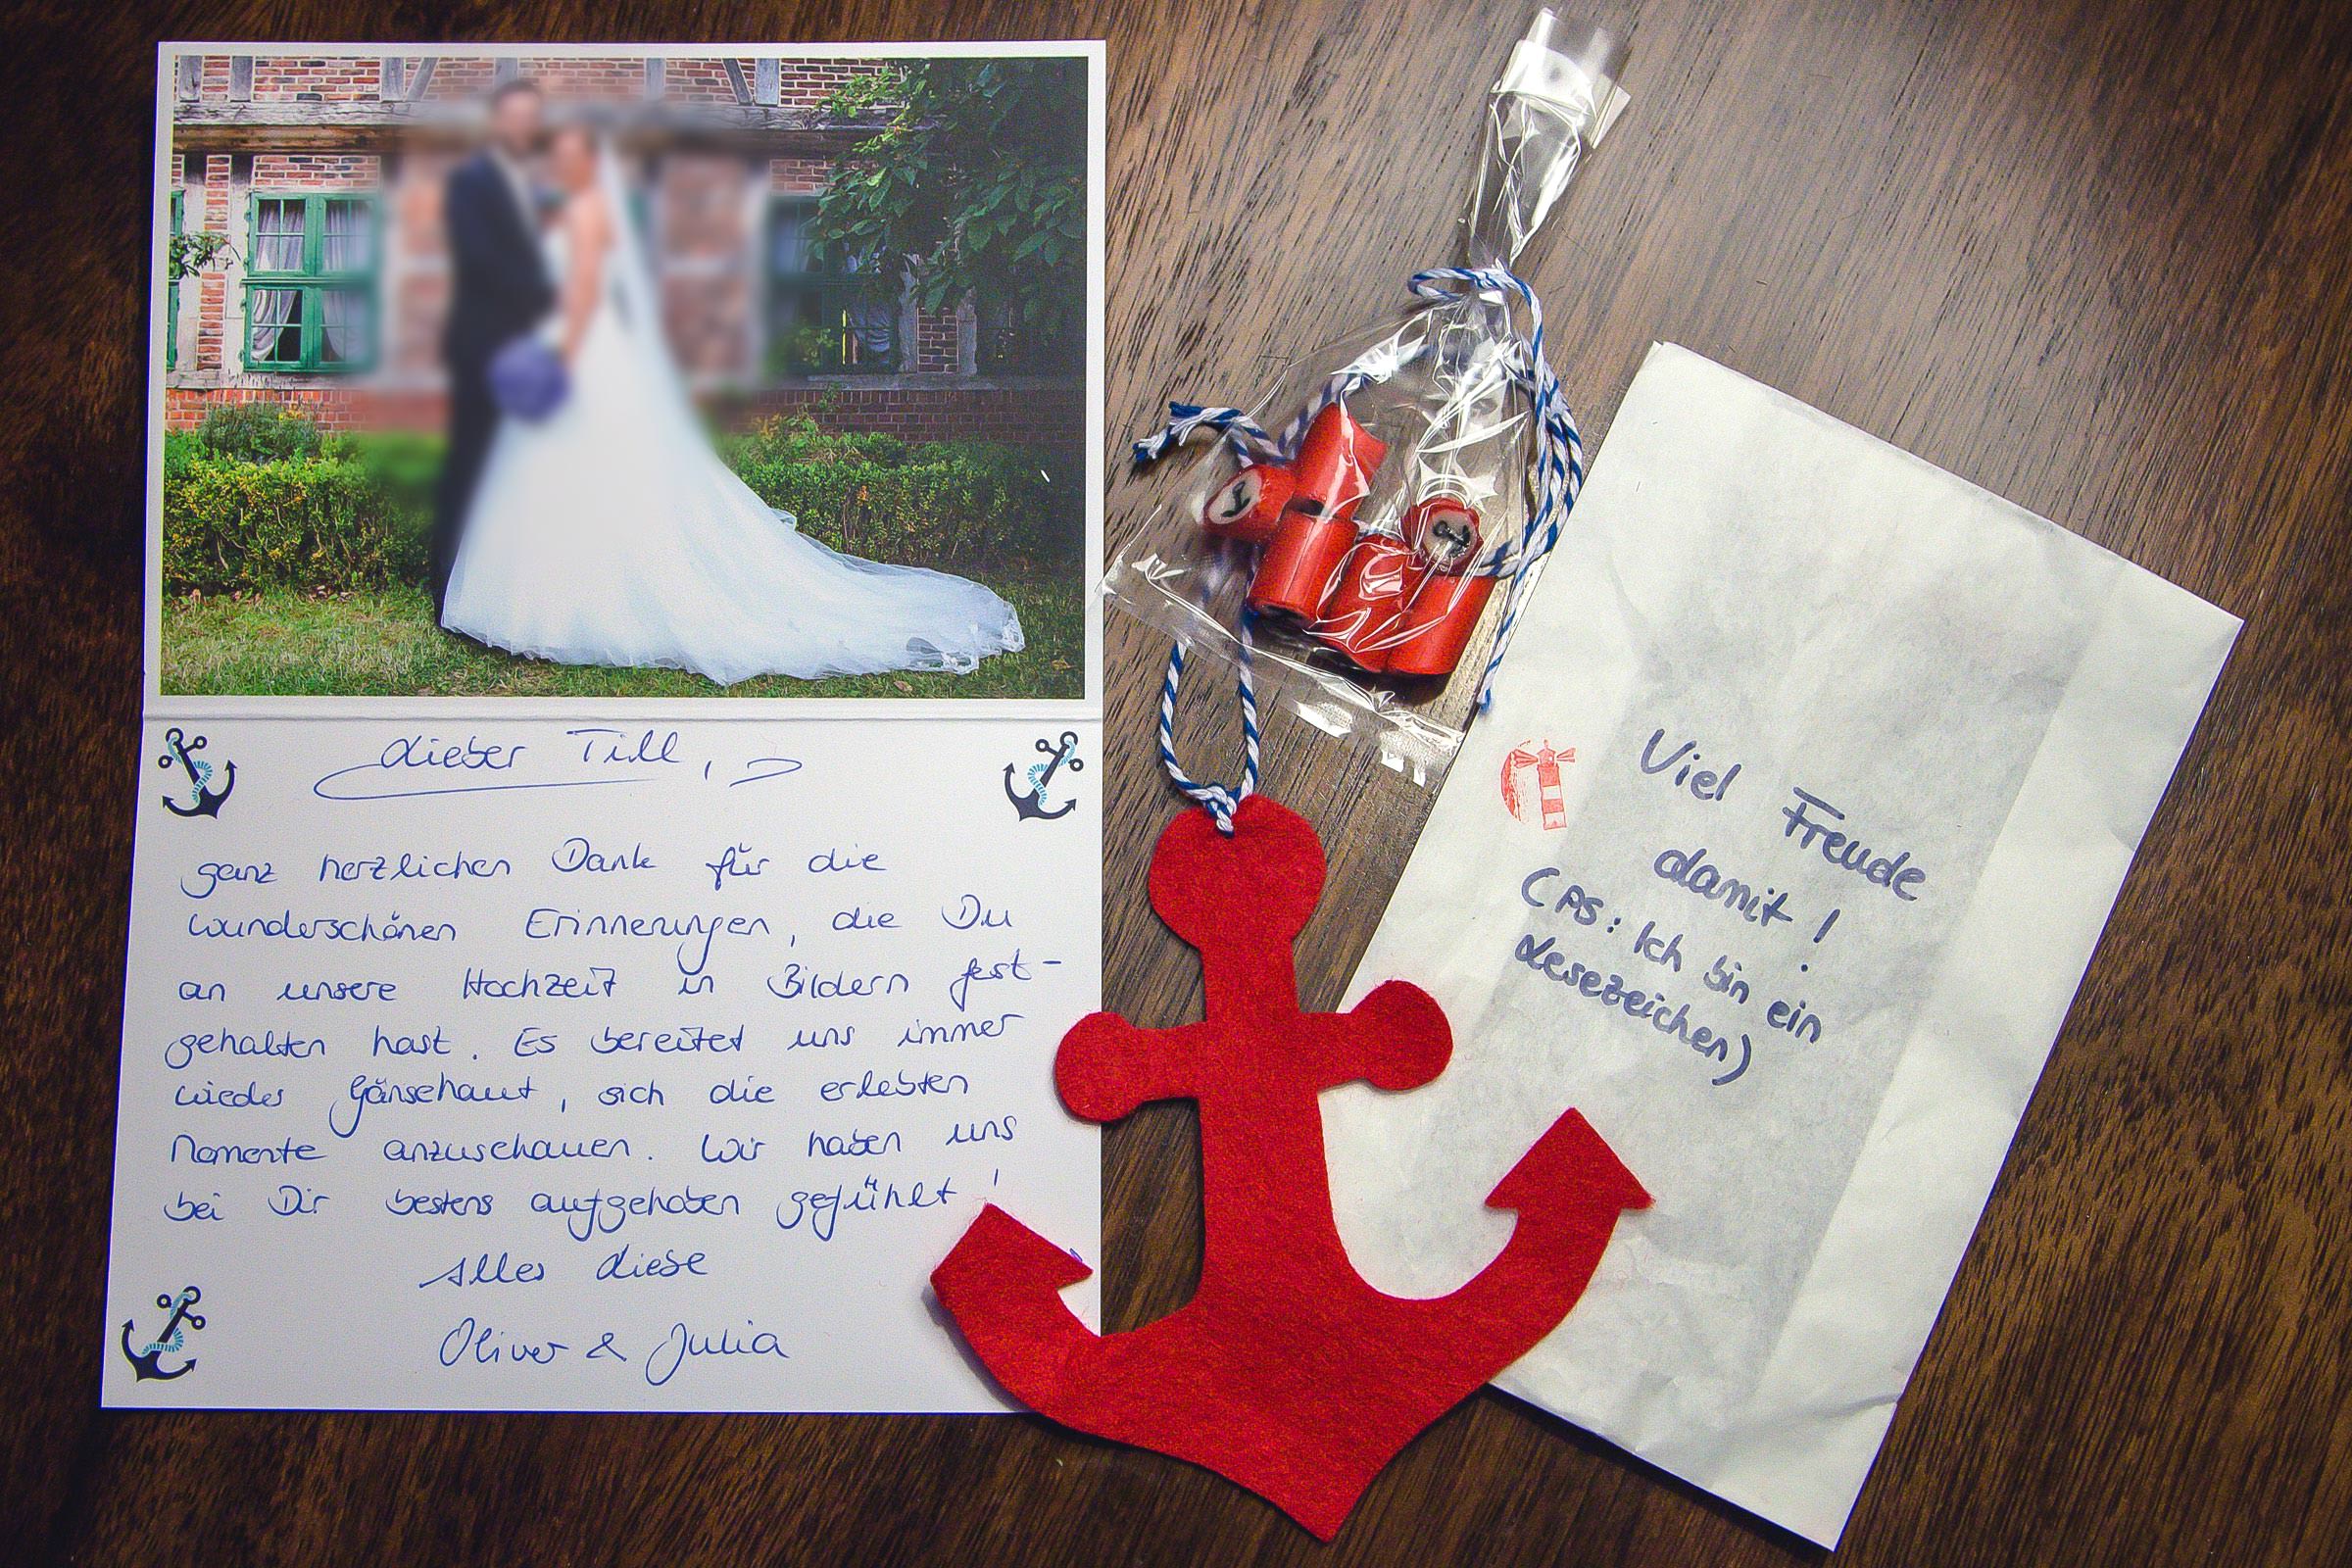 Lieber Till,
ganz herzlichen Dank für die
wunderschönen Erinnerungen, die Du
an unsere Hochzeit in Bildern fest-
gehalten hast. Es bereitet uns immer
wieder Gänsehaut, sich die erlebten
Momente anzuschauen. Wir haben uns
bei Dir bestens aufgehoben gefühlt!
Alles Liebe
Oliver & Julia
Viel Freude
damit!
(PS: Ich bin ein
Lesezeichen)